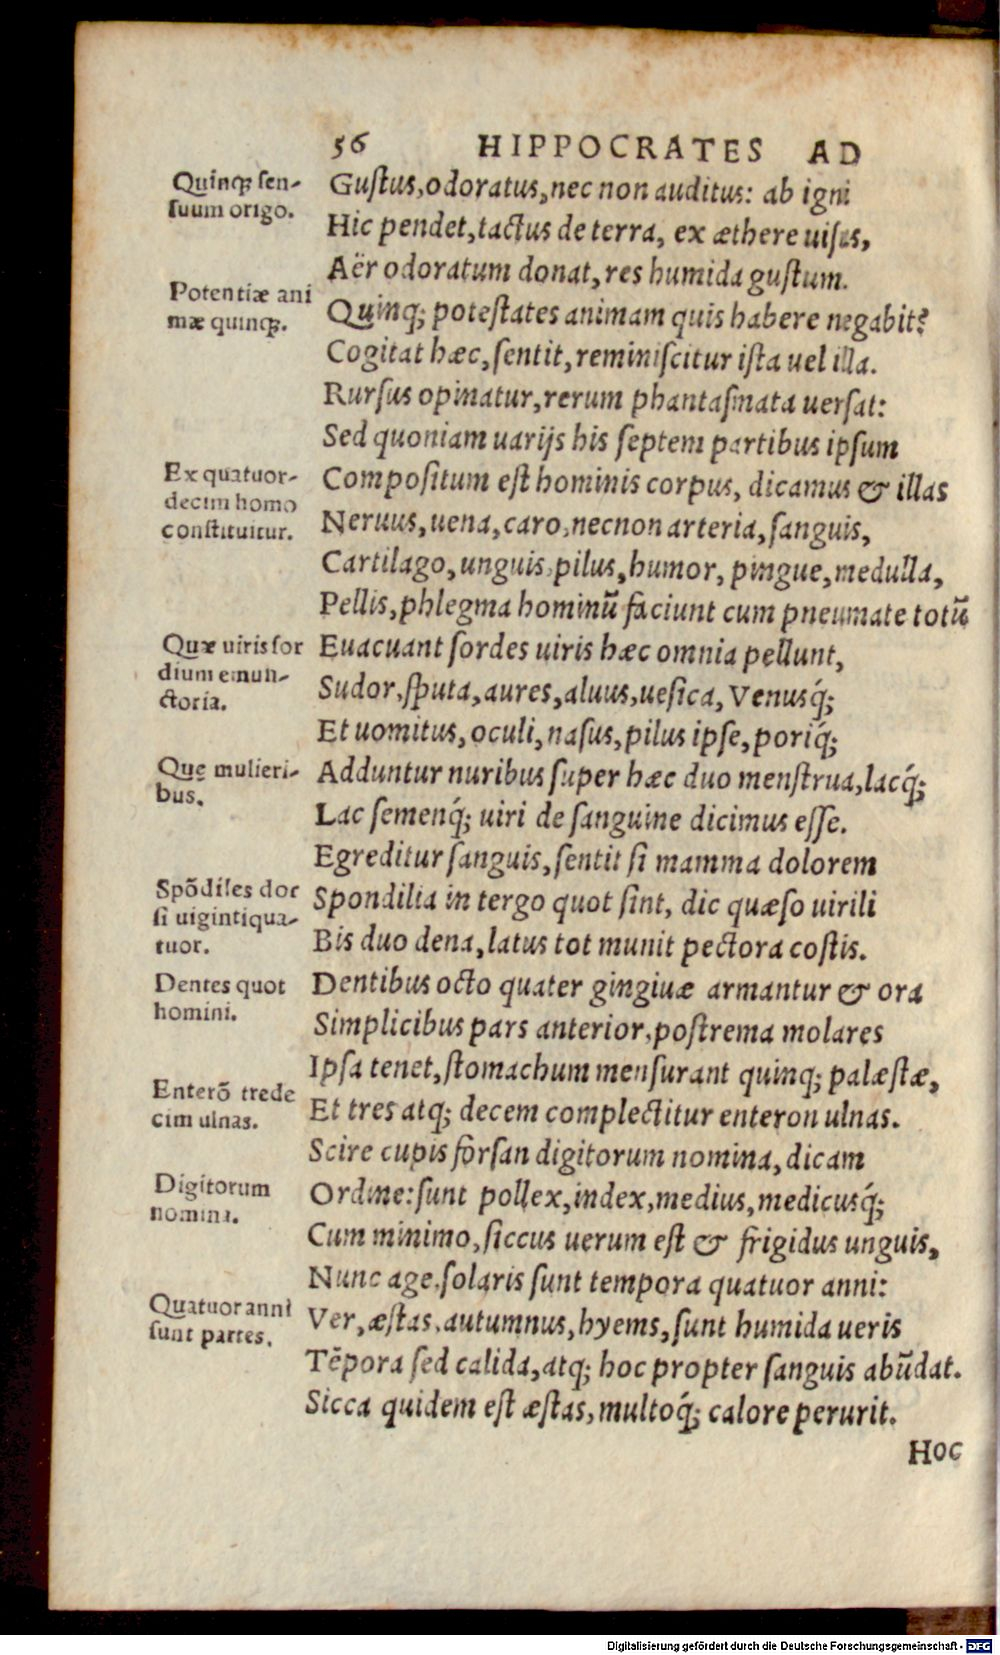 56 HIPPOCRATES AD
Quinq; sen-
suum origo.
Gustus, odoratus, nec non auditus: ab igni
Hic pendet, tactus de terra, ex æthere uisus,
Aër odoratum donat, res humida gustum.
Potentiæ ani
mæ quinq;.
Quinq; potestates animam quis habere negabit?
Cogitat hæc, sentit, reminiscitur ista uel illa.
Rursus opinatur, rerum phantasmata uersat:
Sed quoniam uarijs his septem partibus ipsum
Ex quatuor-
decim homo
constituitur.
Compositum est hominis corpus, dicamus & illas
Neruus, uena, caro, necnon arteria, sanguis,
Cartilago, unguis, pilus, humor, pingue, medulla,
Pellis, phlegma hominũ faciunt cum pneumate totũ
Quæ uiris sor
dium emun-
ctoria.
Euacuant sordes uiris hæc omnia pellunt,
Sudor, sputa, aures, aluus, uesica, Venusq́;
Et uomitus, oculi, nasus, pilus ipse, poriq́;
Que mulieri-
bus.
Adduntur nuribus super hæc duo menstrua, lacq́;
Lac semenq́; uiri de sanguine dicimus esse.
Egreditur sanguis, sentit si mamma dolorem
Spõdiles dor
si uigintiqua-
tuor.
Spondilia in tergo quot sint, dic quæso uirili
Bis duo dena, latus tot munit pectora costis.
Dentes quot
homini.
Dentibus octo quater gingiuæ armantur & ora
Simplicibus pars anterior, postrema molares
Ipsa tenet, stomachum mensurant quinq; palæstæ,
Enterõ trede
cim ulnas.
Et tres atq; decem complectitur enteron ulnas.
Scire cupis forsan digitorum nomina, dicam
Digitorum
nomina.
Ordine: sunt pollex, index, medius, medicusq́;
Cum minimo, siccus uerum est & frigidus unguis,
Nunc age, solaris sunt tempora quatuor anni:
Quatuor anni
sunt partes.
Ver, æstas, autumnus, hyems, sunt humida ueris
Tẽpora sed calida, atq; hoc propter sanguis abũdat.
Sicca quidem est æstas, multoq́; calore perurit.
Hoc
Digitalisierung gefördert durch die Deutsche Forschungsgemeinschaft - DFG